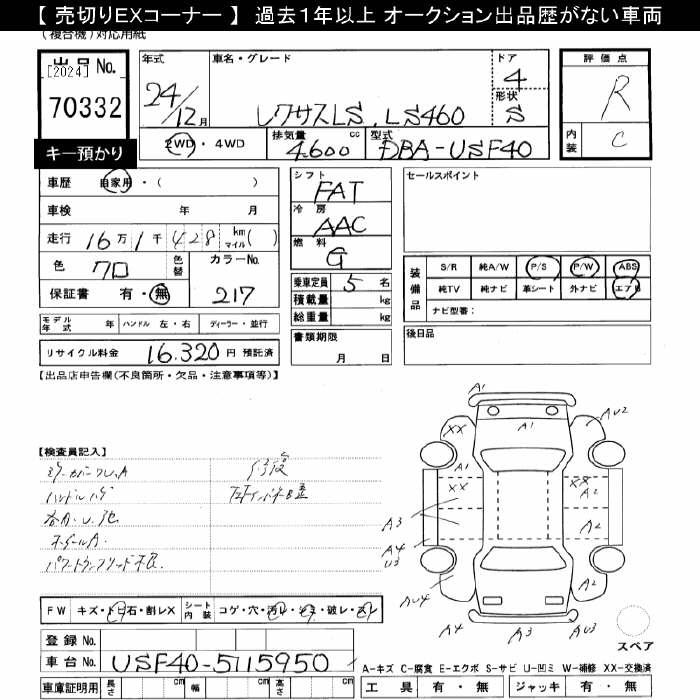 【 売切りEXコーナー 】 過去1年以上 オークション出品歴がない車両
(複合機)対応用紙
出品 No.
[2024]
70332
キー預かり
年式
24/12月
車名・グレード
レクサスLS LS460
ドア
4
形状
S
2WD・4WD
排気量 cc
4600
型式
DBA-USF40
評価点
R
内装
C
車歴 自家用・( )
車検 年 月
走行 16万1千428 km マイル( )
色 クロ 色替 カラーNo.
217
保証書 有・無
モデル年式 年 ハンドル 左・右 ディーラー・並行
リサイクル料金 16,320円 預託済
シフト
FAT
冷房
AAC
燃料
G
乗車定員 5 名
積載量 kg
総重量 kg
書類期限
月 日
セールスポイント
装備品
S/R 純A/W P/S P/W ABS
純TV 純ナビ 革シート 外ナビ エアB
ナビ型番:
後日品
【出品店申告欄(不良箇所・欠品・注意事項等)】
【検査員記入】
ハンドルハゲ
ホイールA
修復
A1
AU2
XX
A1
XX
XX
A2
A3
A2
A4
U3
AU4
A2
A4
A3
AU3
スペア
FW キズ・トビ石・割レX シート内装 コゲ・穴・汚レ・シミ・破レ・スレ
登録 No.
車台 No. USF40-5115950
車庫証明用 長さ cm 幅 cm 高さ cm
A-キズ C-腐食 E-エクボ S-サビ U-凹ミ W-補修 XX-交換済
工具 有・無 ジャッキ 有・無